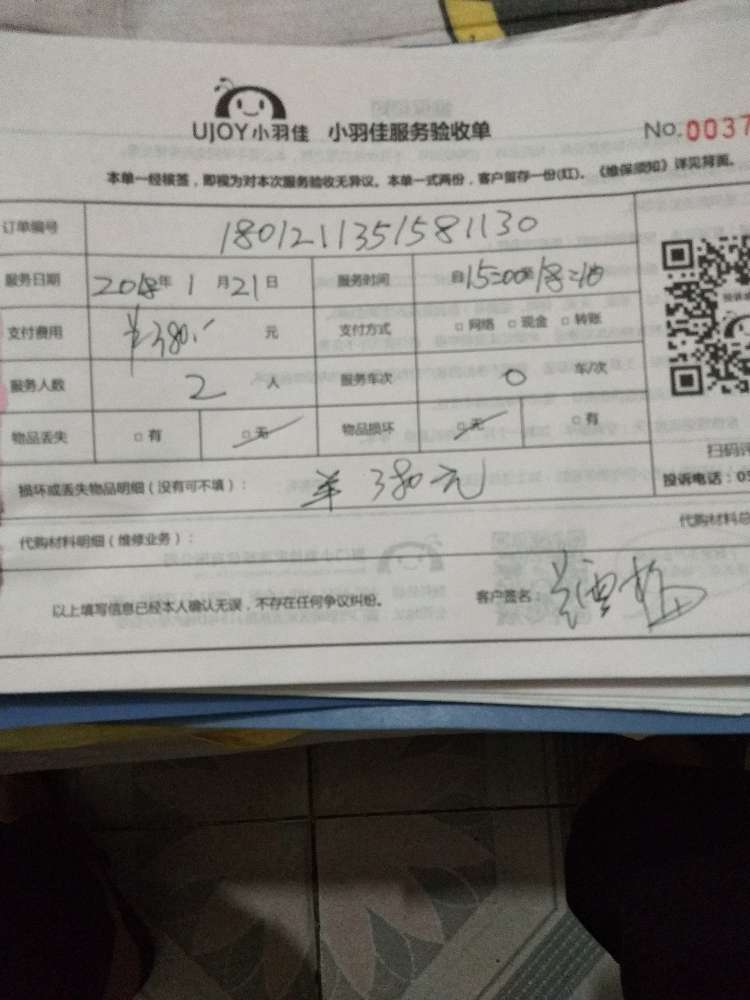 UJOY小羽佳 小羽佳服务验收单 No.0037
本单一经核签，即视为对本次服务验收无异议。本单一式两份，客户留存一份(红)。《维保须知》详见背面。
订单编号 1801211351581130
服务日期 2018年 1 月 21 日 服务时间 自15:00至18:10
支付费用 ¥380.- 元 支付方式 □ 网络 □ 现金 □ 转账
服务人数 2 人 服务车次 0 车/次
物品丢失 □ 有 □ 无 物品损坏 □ 无 □ 有
扫码评
损坏或丢失物品明细（没有可不填）： 380元
投诉电话：05
代购材料明细（维修业务）： 代购材料总
以上填写信息已经本人确认无误，不存在任何争议纠纷。 客户签名：